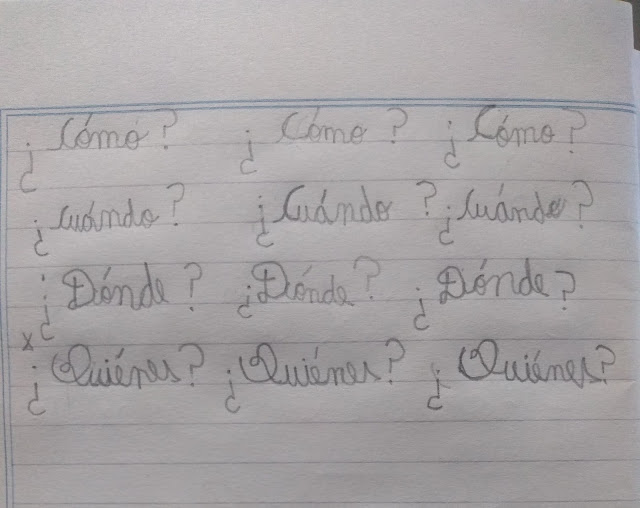 ¿Cómo? ¿Cómo? ¿Cómo?
¿Cuándo? ¿Cuándo? ¿Cuándo?
¿Dónde? ¿Dónde? ¿Dónde?
x
¿Quiénes? ¿Quiénes? ¿Quiénes?